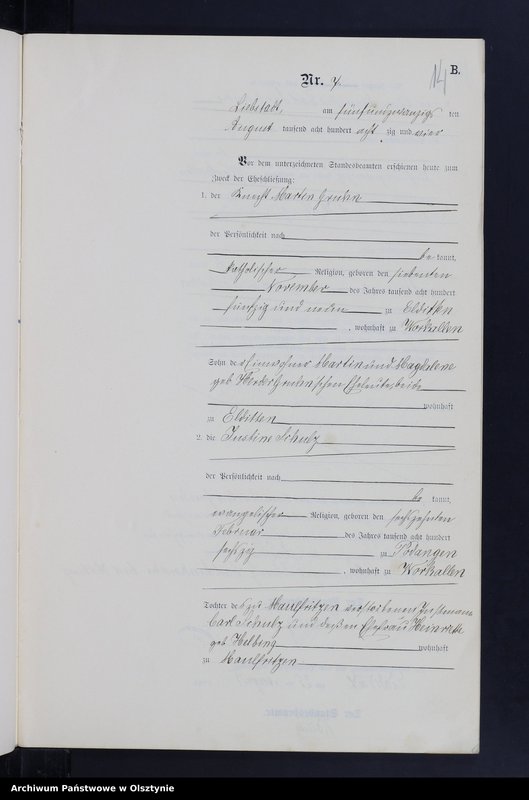 14
B.
Nr. 7.
Liebstadt, am fünfundzwanzigs ten
August tausend acht hundert acht zig und vier
Vor dem unterzeichneten Standesbeamten erschienen heute zum
Zweck der Eheschließung:
1. der Knecht Martin Gruhn
der Persönlichkeit nach
be kannt,
katholischer Religion, geboren den siebenten
November des Jahres tausend acht hundert
fünfzig und neun zu Elditten
, wohnhaft zu Workallen
Sohn der Einwohner Martin und Magdalene
geb Gruhn'schen Eheleute beide
wohnhaft
zu Elditten
2. die Justine Schulz
der Persönlichkeit nach
be kannt,
evangelischer Religion, geboren den sechszehnten
Februar des Jahres tausend acht hundert
sechszig zu Podangen
, wohnhaft zu Workallen
Tochter des zu Maulfritzen verstorbenen Instmann
Carl Schulz und dessen Ehefrau Heinriette
geb Helbing wohnhaft
zu Maulfritzen
Archiwum Państwowe w Olsztynie